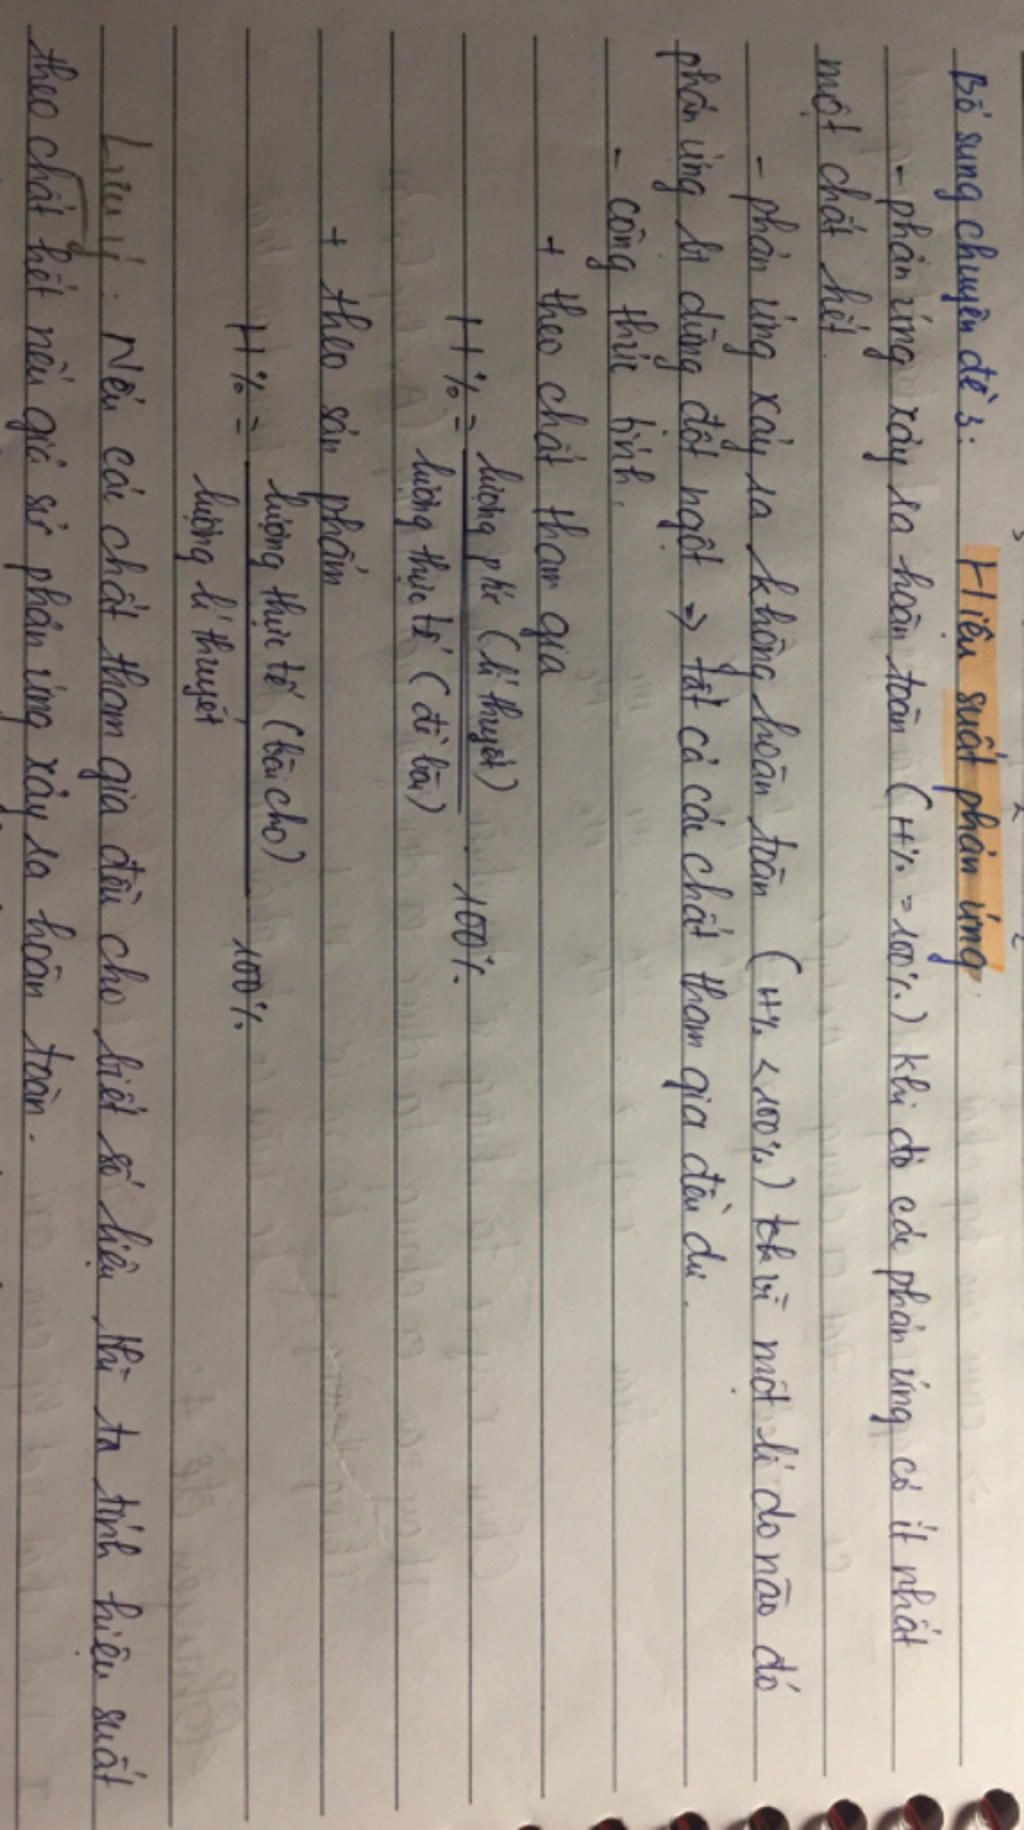 Bổ sung chuyên đề 3: Hiệu suất phản ứng
- phản ứng xảy ra hoàn toàn (H% = 100%) khi đó các phản ứng có ít nhất
một chất hết.
- phản ứng xảy ra không hoàn toàn (H% < 100%) vì một lí do nào đó
phản ứng bị dừng đột ngột => tất cả các chất tham gia đều dư.
- công thức tính.
+ theo chất tham gia
H% = lượng pứ (lí thuyết) / lượng thực tế (đề bài) . 100%
+ theo sản phẩm
H% = lượng thực tế (bài cho) / lượng lí thuyết 100%
Lưu ý: Nếu các chất tham gia đều cho biết số liệu thì ta tính hiệu suất
theo chất hết nếu giả sử phản ứng xảy ra hoàn toàn.